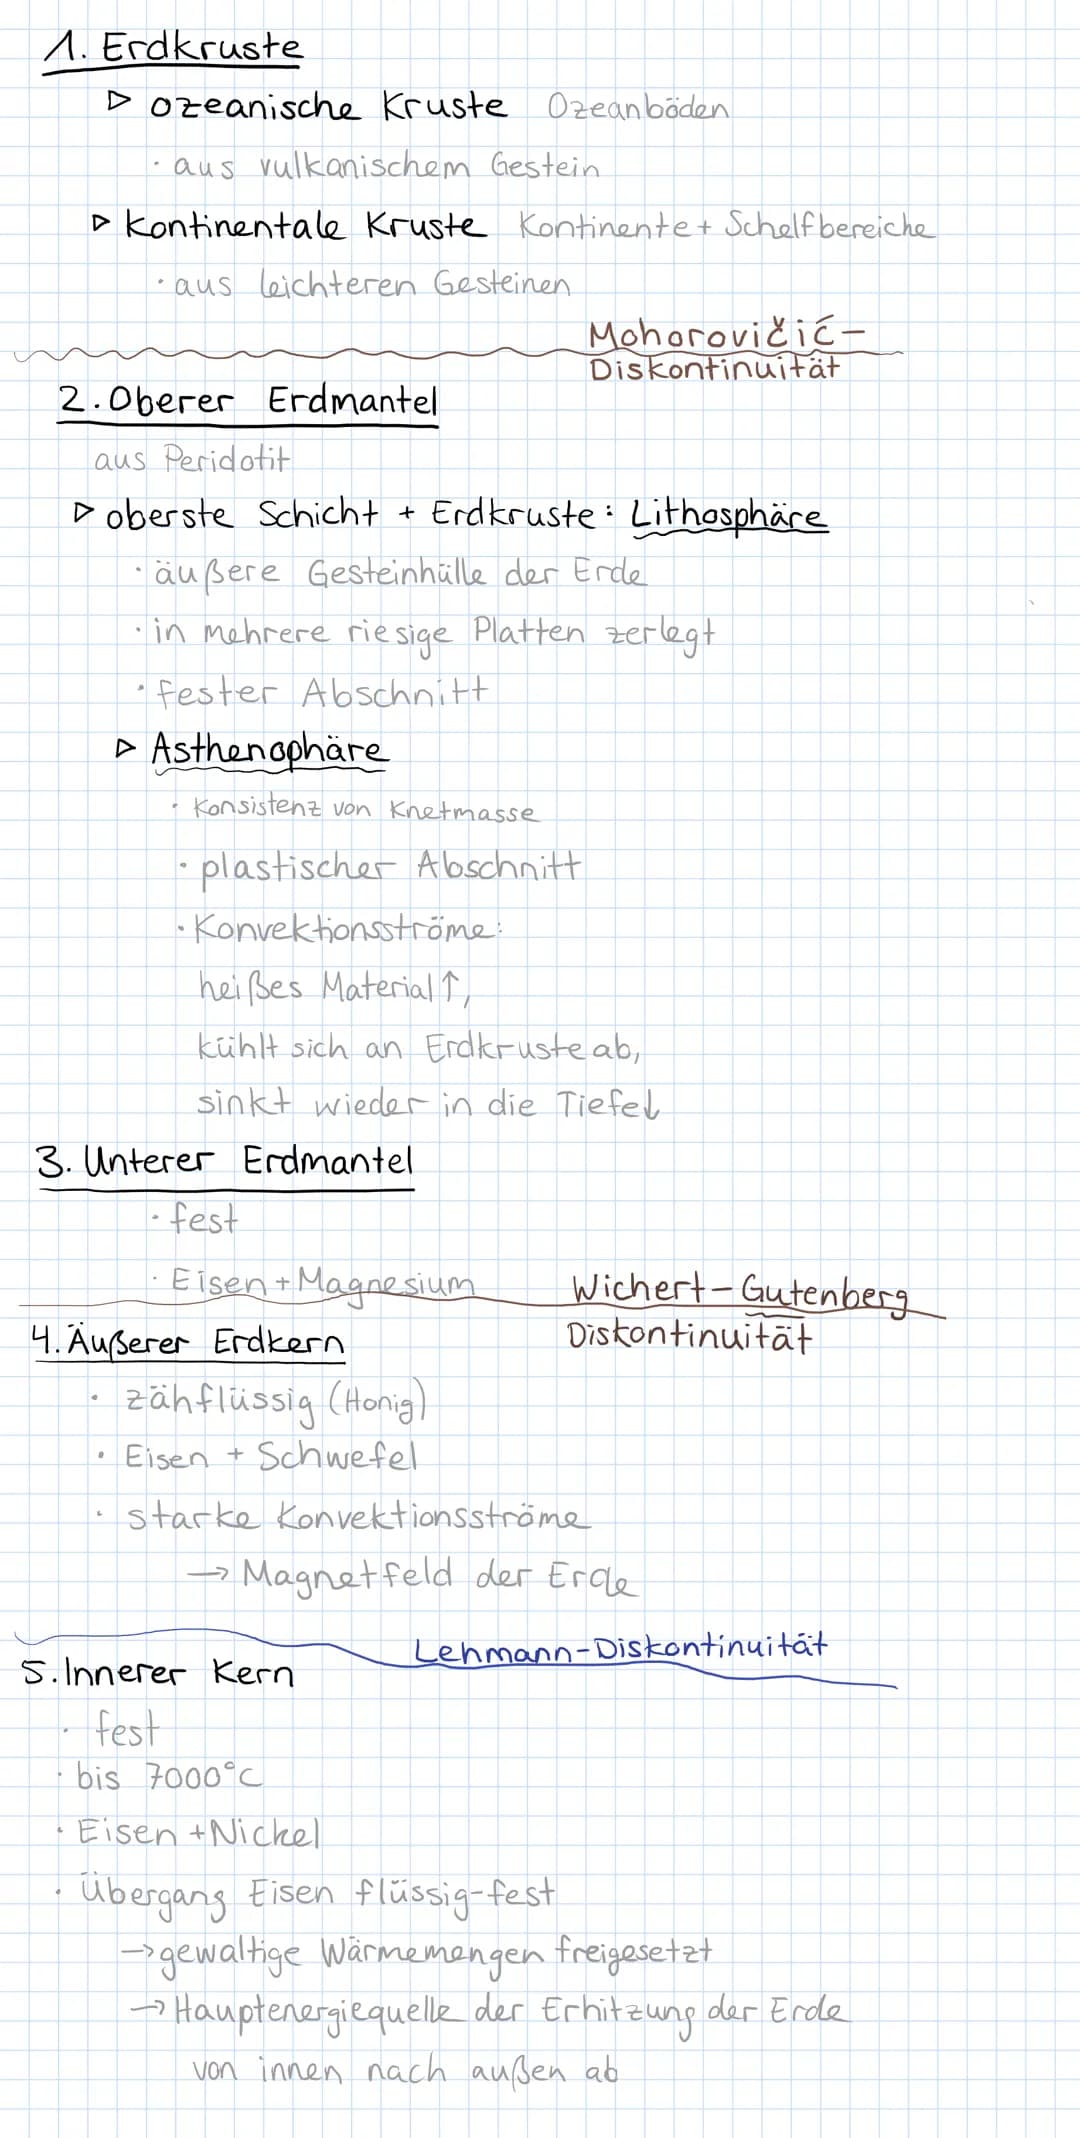 1. Erdkruste
▷ ozeanische Kruste Ozeanböden
· aus vulkanischem Gestein
▷ Kontinentale Kruste Kontinente + Schelfbereiche
· aus leichteren Gesteinen
Mohorovičić-
Diskontinuität
2. Oberer Erdmantel
aus Peridotit
▷ oberste Schicht + Erdkruste: Lithosphäre
· äußere Gesteinhülle der Erde
· in mehrere riesige Platten zerlegt
· fester Abschnitt
▷ Asthenophäre
· Konsistenz von Knetmasse
· plastischer Abschnitt
· Konvektionsströme:
heißes Material ↑,
kühlt sich an Erdkruste ab,
sinkt wieder in die Tiefe ↓
3. Unterer Erdmantel
· fest
· Eisen + Magnesium
Wichert-Gutenberg
Diskontinuität
4. Äußerer Erdkern
· zähflüssig (Honig)
· Eisen + Schwefel
· starke Konvektionsströme
→ Magnetfeld der Erde
Lehmann-Diskontinuität
5. Innerer Kern
· fest
· bis 7000°C
· Eisen + Nickel
· Übergang Eisen flüssig-fest
→ gewaltige Wärmemengen freigesetzt
→ Hauptenergiequelle der Erhitzung der Erde
von innen nach außen ab